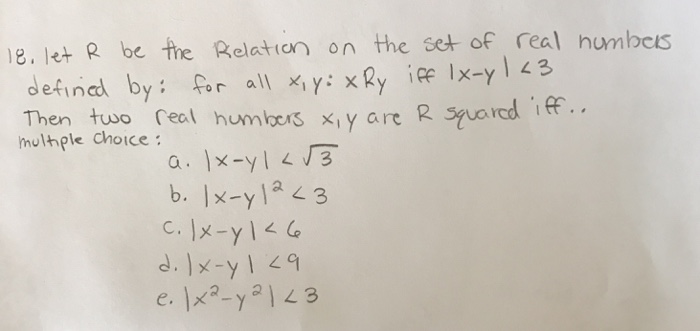 18. let R be the Relation on the set of real numbers
defined by: for all x,y: xRy iff |x-y| <3
Then two real numbers x,y are R squared iff..
multiple choice:
a. |x-y| < √3
b. |x-y|² < 3
c. |x-y| < 6
d. |x-y| < 9
e. |x²-y²| < 3